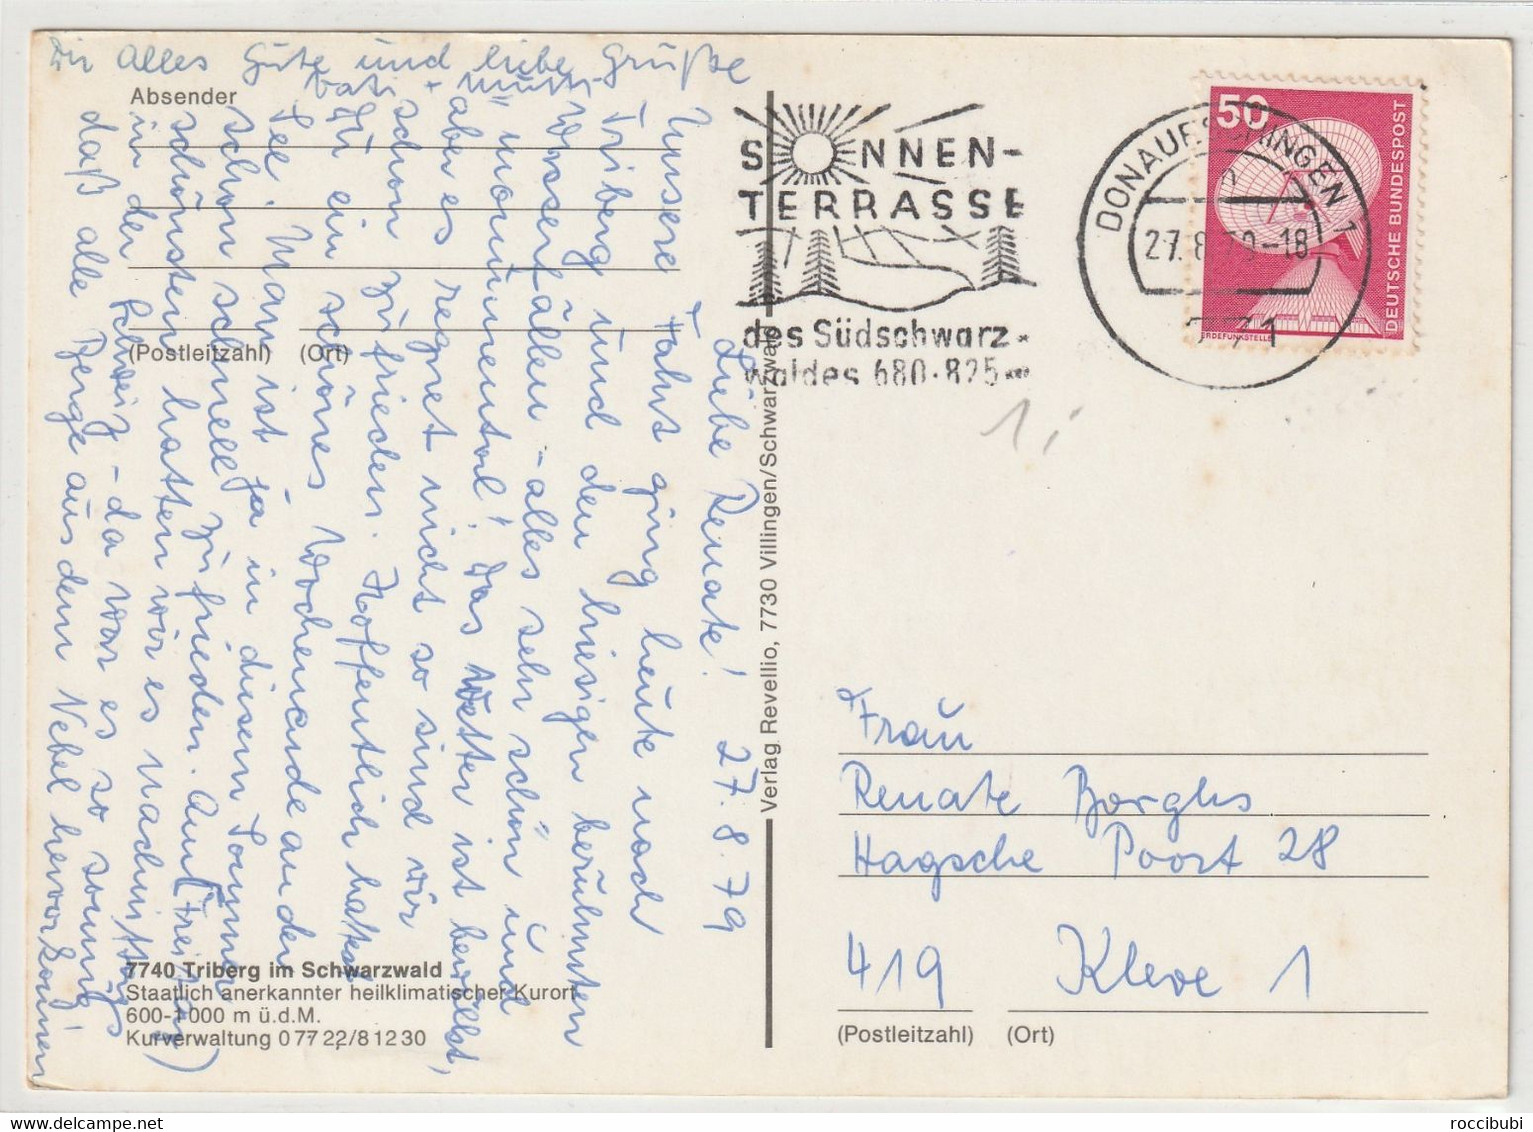 Dir alles Gute und liebe Grüße
Vati + Mutti
Absender
Liebe Renate! 27.8.79
Unsere Fahrt ging heute nach
Triberg und den hiesigen berühmten
Wasserfällen - alles sehr schön und
monumental! Das Wetter ist bewölkt,
aber es regnet nicht so sind wir
schon zufrieden. Hoffentlich hattest
Du ein schönes Wochenende an der
See. Man ist ja in diesem Sommer
schon schnell zufrieden. Am Freitag
schönsten hatten wir es nachmittags
in der Schweiz - da war es so sonnig
daß alle Berge aus dem Nebel hervorkamen!
(Postleitzahl) (Ort)
7740 Triberg im Schwarzwald
Staatlich anerkannter heilklimatischer Kurort
600-1000 m ü.d.M.
Kurverwaltung 0 77 22/8 12 30
Verlag Revellio, 7730 Villingen/Schwarzwald
SONNEN-
TERRASSE
des Südschwarz-
waldes 680-825 m
DONAUESCHINGEN 1
27.8.79-18
771
50
DEUTSCHE BUNDESPOST
ERDEFUNKSTELLE
Frau
Renate Borghs
Hagsche Poort 28
419 Kleve 1
(Postleitzahl) (Ort)
roccibubi